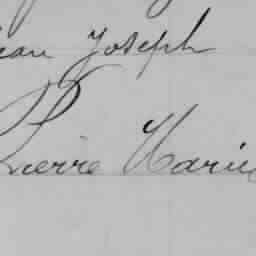 ean Joseph
Pierre Marie